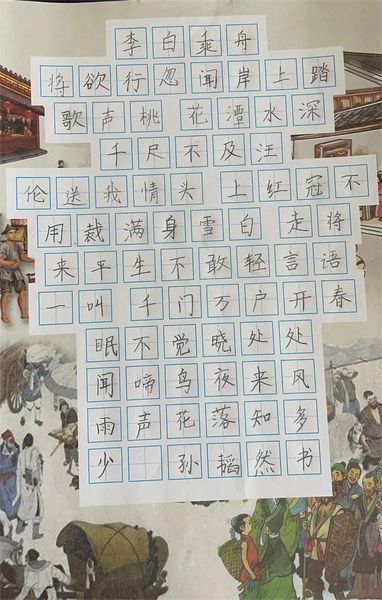 李白乘舟
将欲行忽闻岸上踏
歌声桃 花潭水深
千尺不及汪
伦送我情头 上红冠不
用裁满身雪白 走将
来平生不敢轻言语
一叫 千门万户开春
眠不觉晓处处
闻啼鸟夜来风
雨声花落知多
少 孙韬然书